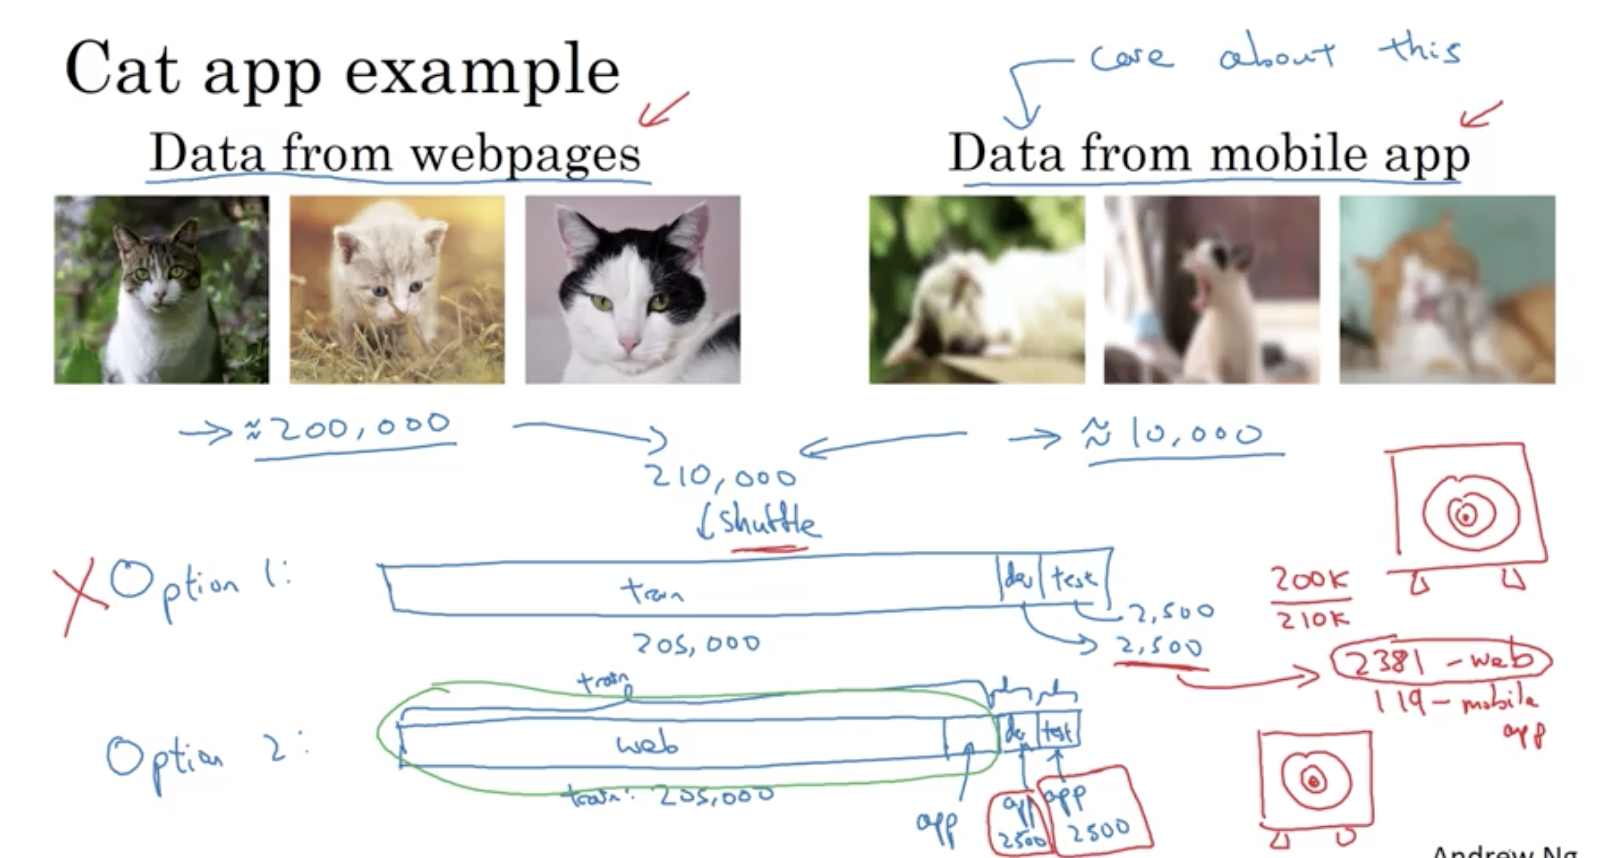 Cat app example
care about this
Data from webpages
Data from mobile app
→ ≈ 200,000
→ ≈ 10,000
210,000
↓ shuffle
X Option 1:
train
dev
test
205,000
2,500
2,500
200K
210K
2381 - web
119 - mobile
app
train
Option 2:
web
dev
test
train: 205,000
app
app
2500
app
2500
Andrew Ng